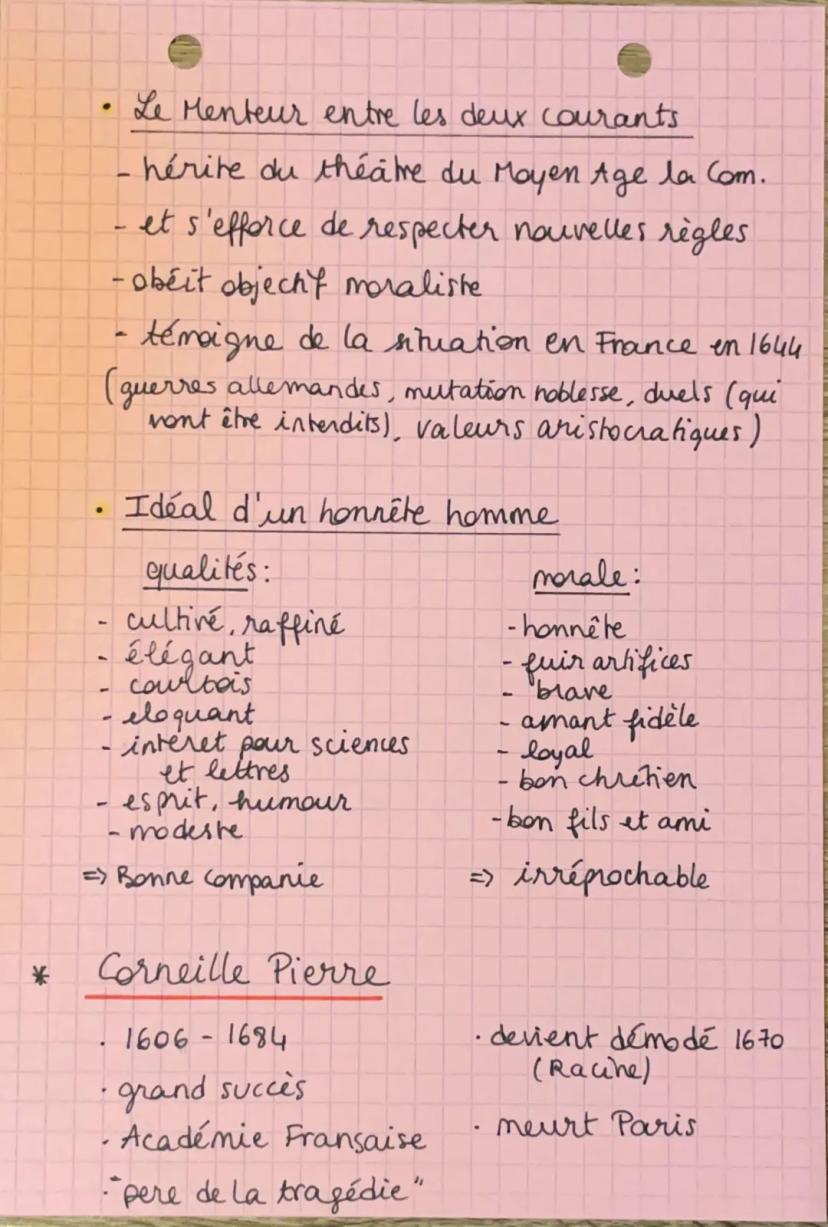 • Le Menteur entre les deux courants
- hérite du théâtre du Moyen Age la Com.
- et s'efforce de respecter nouvelles règles
- obéit objectif moraliste
- témoigne de la situation en France en 1644
(guerres allemandes, mutation noblesse, duels (qui
vont être interdits), valeurs aristocratiques)
• Idéal d'un honnête homme
qualités:
- cultivé, raffiné
- élégant
- courtois
- eloquant
- intéret pour sciences
et lettres
- esprit, humour
- modeste
=> Bonne compagnie
morale:
- honnête
- fuir artifices
- brave
- amant fidèle
- loyal
- bon chrétien
- bon fils et ami
=> irréprochable
* Corneille Pierre
. 1606 - 1684
. grand succès
. Académie Fransaise
. "pere de la tragédie"
. devient démodé 1670
(Racine)
. meurt Paris